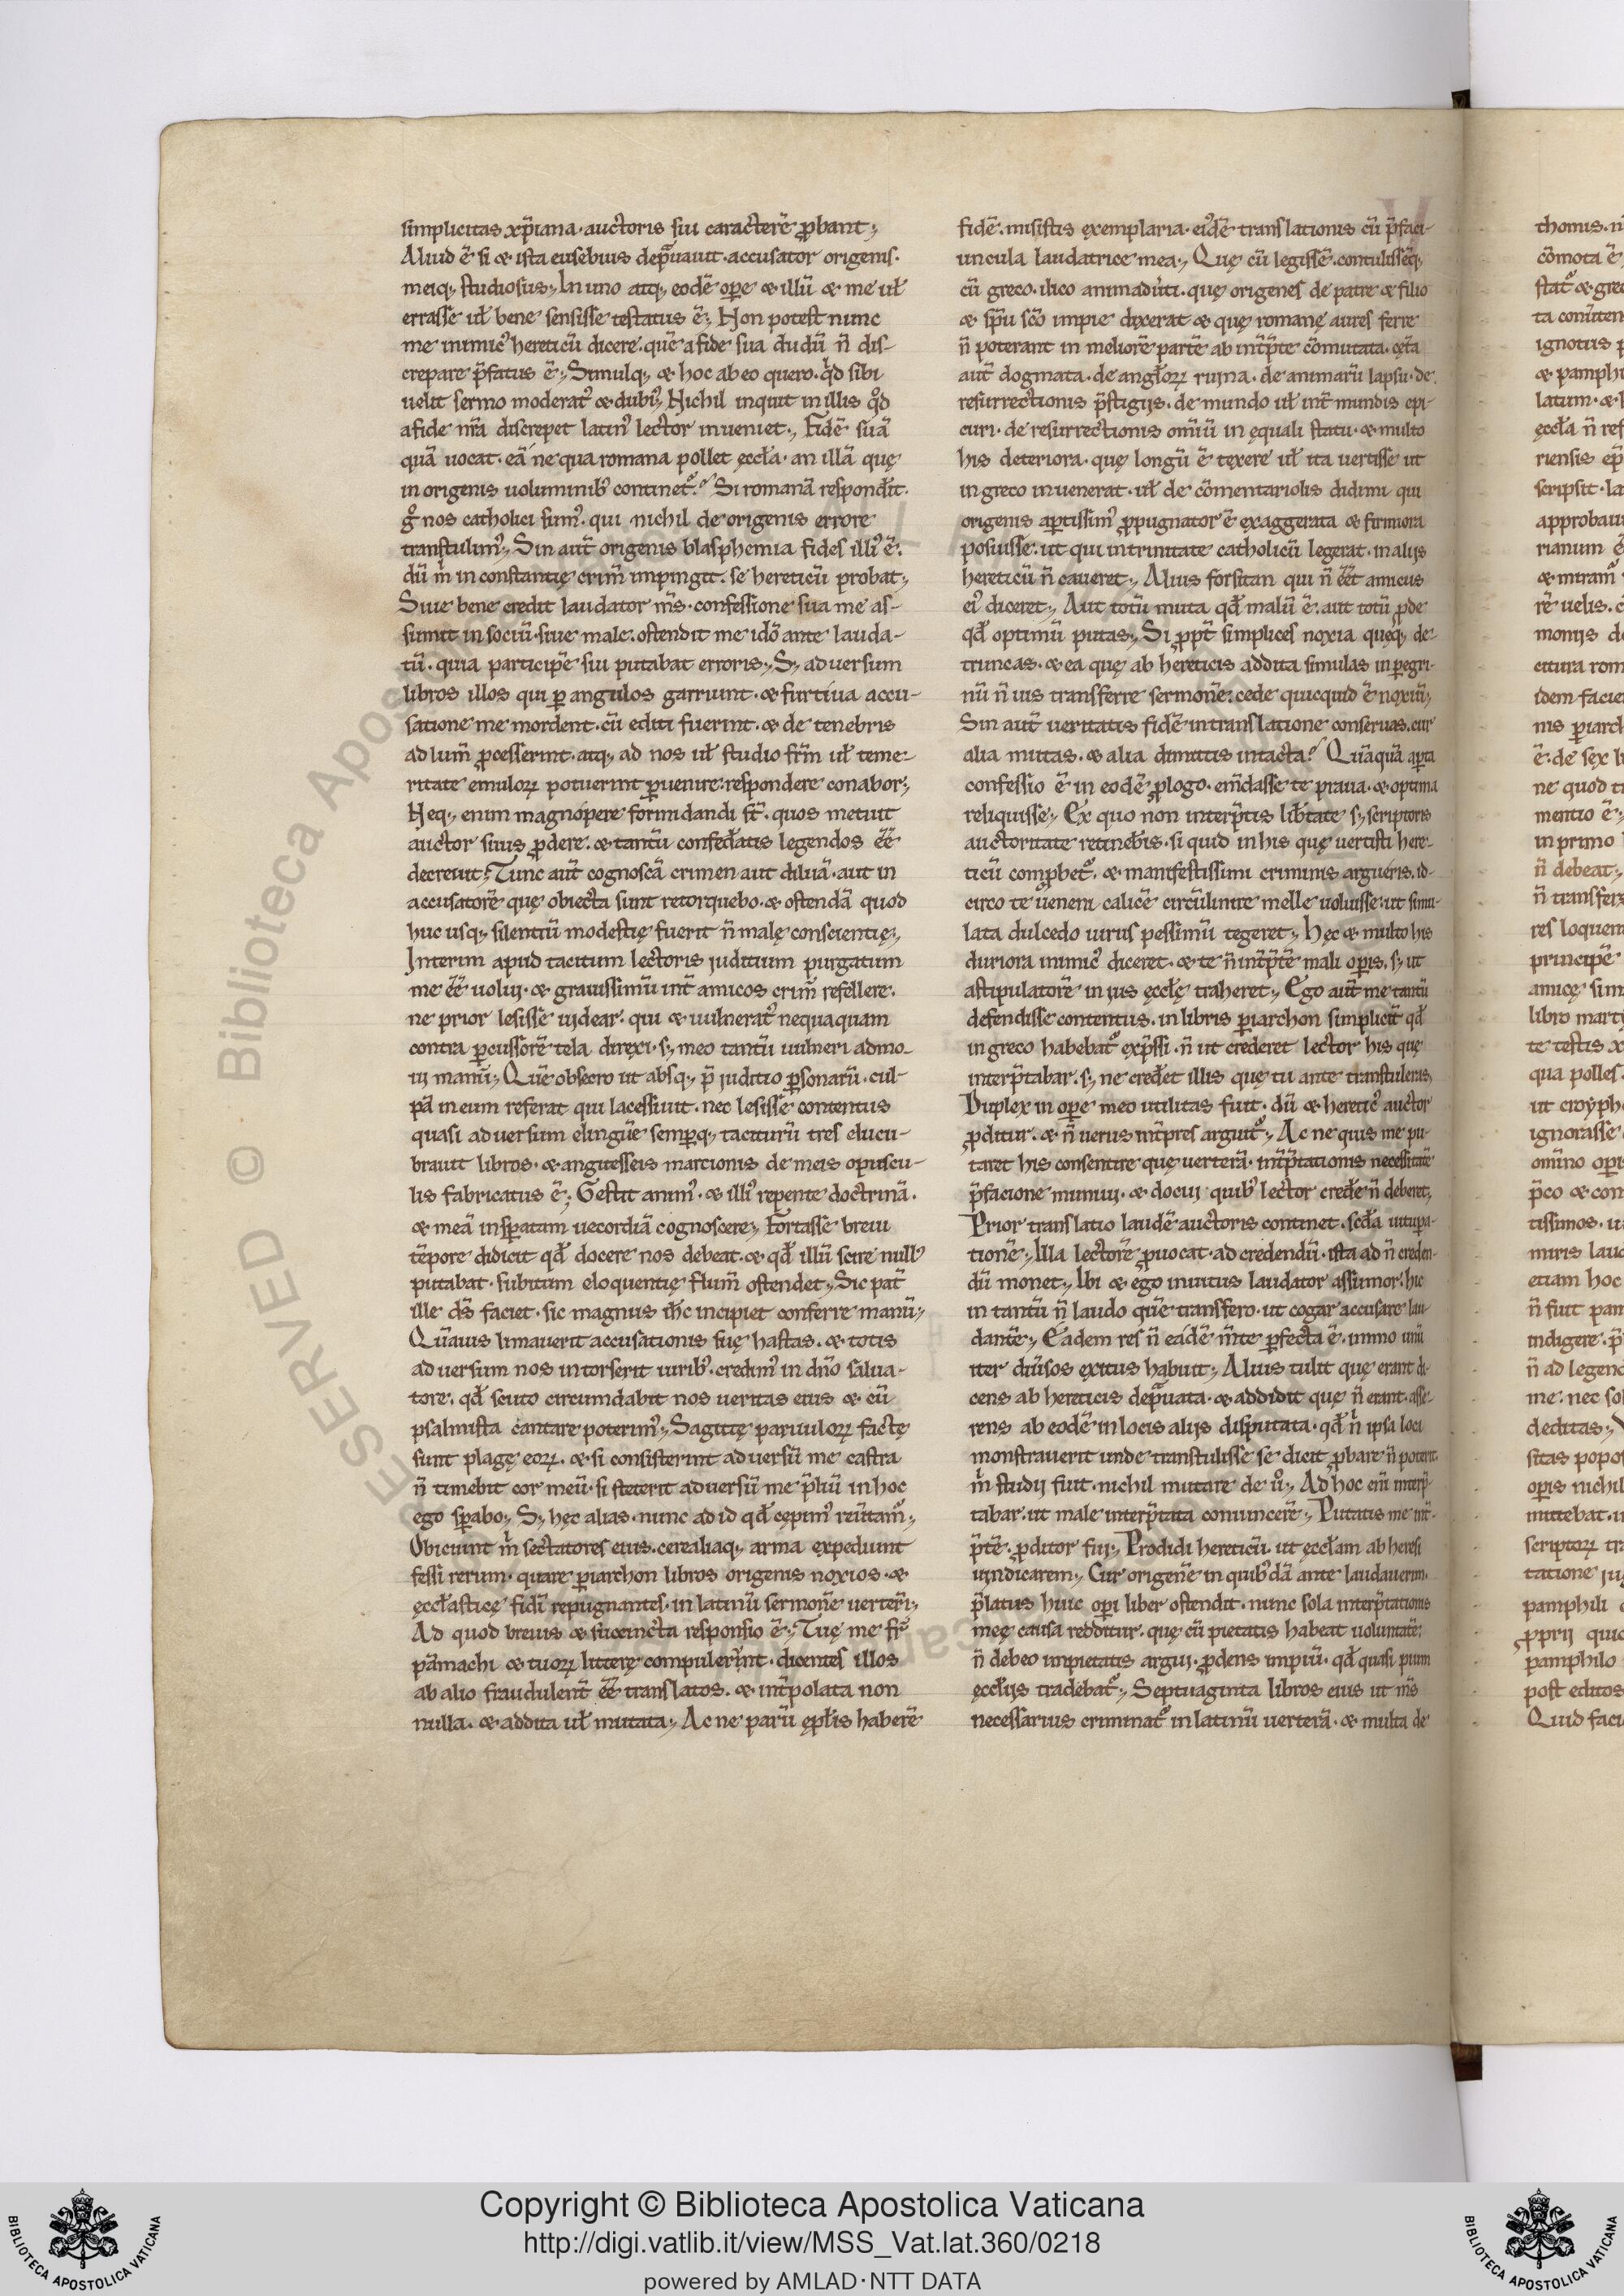 simplicitas xp̃iana · auctoris sui caracterẽ ꝓbant ;
Aliud ẽ si & ista eusebius depͣuauit · accusator origenis ·
meiq; studiosus ; In uno atq; eodẽ oꝑe & illũ & me ul̃
errasse ul̃ bene sensisse testatus ẽ ; Non potest nunc
me inimicꝰ hereticũ dicere · quẽ a fide sua dudũ ñ dis-
crepare p̃fatus ẽ ; Simulq; & hoc ab eo quero · qͥd sibi
uelit sermo moderatꝰ & dubiꝰ ; Nichil inquit in illis qͦd
a fide nr̃a discrepet latinꝰ lector inueniet ; Fidẽ suã
quã uocat · eã ne qua romana pollet ęccl̃a · an illã quę
in origenis uoluminibꝰ continet᷑ ? Si romanã respondit ·
gͦ nos catholici sumꝰ · qui nichil de origenis errore
transtulimꝰ ; Sin aut̃ origenis blasphemia fides illiꝰ ẽ ·
dũ m̃ inconstantię crim̃ impingit · se hereticũ probat ;
Siue bene credit laudator m̃s · confessione sua me as-
sumit in sociũ · siue male · ostendit me idõ ante lauda-
tũ · quia participẽ sui putabat erroris ; S; aduersum
libros illos qui ꝑ angulos garriunt · & furtiua accu-
satione me mordent · cũ editi fuerint · & de tenebris
ad lum̃ ꝓcesserint · atq; ad nos ul̃ studio fr̃m ul̃ teme-
ritate emuloꝝ potuerint ꝑuenire · respondere conabor ;
Neq; enim magnopere formidandi st̃ · quos metuit
auctor suus ꝓdere · & tantũ confed̃atis legendos ẽẽ
decreuit ; Tunc aut̃ cognoscã crimen aut diluã · aut in
accusatorẽ quę obiecta sunt retorquebo · & ostendã quod
huc usq; silentiũ modestię fuerit ñ malę conscientię ;
Interim apud tacitum lectoris iuditium purgatum
me ẽẽ uolui · & grauissimũ int̃ amicos crim̃ refellere ·
ne prior lesisse uidear · qui & uulneratꝰ nequaquam
contra ꝑcussorẽ tela direxi · s; meo tantũ uulneri admo-
ui manũ ; Quẽ obsecro ut absq; p̃iuditio ꝑsonarũ · cul-
pã in eum referat qui lacessiuit · nec lesisse contentus
quasi aduersum elinguẽ semꝑq; taciturũ tres elucu-
brauit libros · & anguesseis marcionis de meis opuscu-
lis fabricatus ẽ ; Gestit animꝰ · & illiꝰ repente doctrinã ·
& meã insꝑatam uecordiã cognoscere ; Fortasse breui
tẽpore didicit qd̃ docere nos debeat · & qd̃ illũ scire nullꝰ
putabat · subitum eloquentię flum̃ ostendet ; Sic pat̃
ille ds̃ faciet · sic magnus ih̃c incipiet conferre manũ ;
Quãuis limauerit accusationis suę hastas · & totis
aduersum nos intorserit uiribꝰ · credimꝰ in dño salua-
tore · qd̃ scuto circumdabit nos ueritas eius & cũ
psalmista cantare poterimꝰ ; Sagittę paruuloꝝ factę
sunt plagę eoꝝ · & si consisterint aduersũ me castra
ñ timebit cor meũ · si steterit aduersũ me p̃liũ in hoc
ego sꝑabo ; S; hęc alias · nunc ad id qd̃ cępimꝰ reũtamꝰ ;
Obiciunt m̃ sectatores eius · cerealiaq; arma expediunt
fessi rerum · quare ꝑiarchon libros origenis noxios · &
ęccl̃asticę fidi repugnantes · in latinũ sermonẽ uerterĩ ;
Ad quod breuis & succincta responsio ẽ ; Tuę me fr̃
pãmachi & tuoꝝ litterę compulerunt · dicentes illos
ab alio fraudulent̃ ẽẽ translatos · & int̃polata non
nulla · & addita ul̃ mutata ; Ac ne parũ epl̃is haberẽ
fidẽ · misistis exemplaria · eiꝰdẽ translationis cũ p̃faci-
uncula laudatrice mea ; Quę cũ legissẽ · contulissẽq;
cũ greco · ilico animaduti · quę origenes de patre & filio
& sp̃u scõ impie dixerat & quę romanę aures ferre
ñ poterant in meliorẽ partẽ ab int̃p̃te cõmutata · cęt̃a
aut̃ dogmata · de angl̃oꝝ ruina · de animarũ lapsu · de
resurrectionis p̃stigijs · de mundo ul̃ int̃ mundis epi-
curi · de resurrectionis om̃iũ in equali statu · & multo
his deteriora · quę longũ ẽ texere ul̃ ita uertisse ut
in greco inuenerat · ul̃ de cõmentariolis didimi qui
origenis aꝑtissimꝰ ꝓpugnator ẽ exaggerata & firmiora
posuisse · ut qui in trinitate catholicũ legerat · in alijs
hereticũ ñ caueret ; Alius forsitan qui ñ ẽẽt amicus
eiꝰ diceret ; Aut totũ muta qd̃ malũ ẽ · aut totũ ꝓde
qd̃ optimũ putas ; Si ꝓpt̃ simplices noxia quęq; de-
truncas · & ea quę ab hereticis addita simulas in ꝑegri-
nũ ñ uis transferre sermonẽ · cede quicquid ẽ noxiũ ;
Sin aut̃ ueritatis fidẽ in translatione conseruas · cur
alia mutas · & alia dimittis intacta ? Quãquã aꝑta
confessio ẽ in eodẽ ꝓlogo · em̃dasse te praua · & optima
reliquisse ; Ex quo non interp̃tis lib̃tate s; scriptoris
auctoritate retineb̃is · si quid in his quę uertisti here-
ticũ comꝓbet᷑ · & manifestissimi criminis argueris · id-
circo te ueneni calicẽ circũlinire melle uoluisse · ut simu-
lata dulcedo uirus pessimũ tegeret ; Hęc & multo his
duriora inimicꝰ diceret · & te ñ int̃p̃tẽ mali oꝑis · s; ut
astipulatorẽ in ius ęccl̃ę traheret ; Ego aut̃ me tantũ
defendisse contentus · in libris ꝑiarchon simplicit̃ qd̃
in greco habebat᷑ exp̃ssi · ñ ut crederet lector his quę
interp̃tabar · s; ne cred̃et illis quę tu ante transtuleras ;
Duplex in oꝑe meo utilitas fuit · dũ & hereticꝰ auctor
ꝓditur · & ñ uerus int̃pres arguit᷑ ; Ac ne quis me pu-
taret his consentire quę uerterã · int̃p̃tationis necessitatẽ
p̃facione muniui · & docui quibꝰ lector cred̃e ñ deberet ;
Prior translatio laudẽ auctoris continet · scd̃a uituꝑa-
tionẽ ; Illa lectorẽ ꝓuocat · ad credendũ · ista ad ñ creden-
dũ monet ; Ibi & ego inuitus laudator assumor · hic
in tantũ ñ laudo quẽ transfero · ut cogar accusare lau-
dantẽ ; Eadem res ñ eadẽ m̃te ꝑfecta ẽ · immo unũ
iter diũsos exitus habuit ; Alius tulit quę erant di-
cens ab hereticis depͣuata · & addidit quę ñ erant · asse-
rens ab eodẽ in locis alijs disputata · qd̃ nͥ ipsa loci
monstrauerit unde transtulisse se dicit ꝓbare ñ poterit ·
m̃ studij fuit · nichil mutare de uͦ ; Ad hoc eni interp̃-
tabar · ut male interp̃tata conuincerẽ ; Putatis me int̃-
p̃tẽ · ꝓditor fui ; Prodidi hereticũ · ut ęccl̃am ab heresi
uindicarem ; Cur origenẽ in quibꝰdã ante laudauerim ·
p̃latus huic oꝑi liber ostendit · nunc sola interp̃tationis
meę causa redditur · quę cũ pietatis habeat uoluntatẽ ·
ñ debeo impietatis argui · ꝓdens impiũ · qd̃ quasi pium
ęccl̃ijs tradebat᷑ ; Septuaginta libros eius ut m̃s
necessarius criminat᷑ in latinũ uerterã · & multa de
Copyright © Biblioteca Apostolica Vaticana
http://digi.vatlib.it/view/MSS_Vat.lat.360/0218
powered by AMLAD·NTT DATA